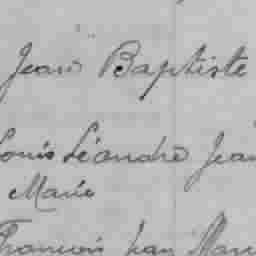 Jean Baptiste
Louis Léandre Jean
Marie
François Jean Marie